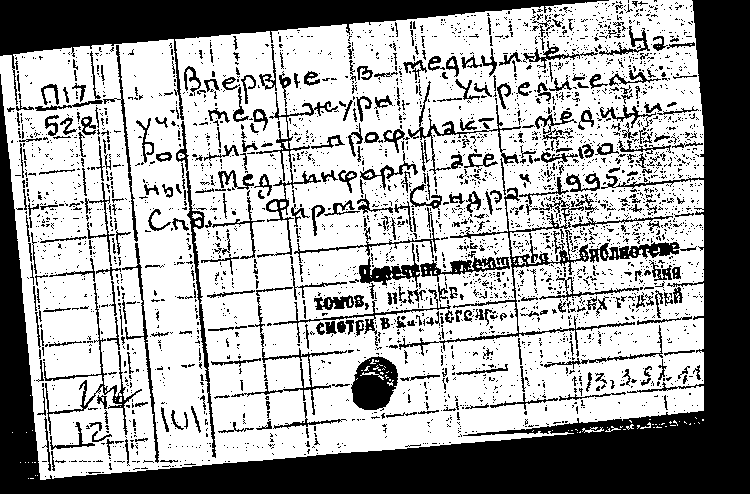 П17
528
Впервые в медицине : На-
уч. мед. журн. / Учредители:
Рос. ин-т профилакт. медици-
ны, Мед. информ. агентство. -
Спб. : Фирма "Сандра", 1995-
Перечень имеющихся в библиотеке
томов,
смотри в
12
101